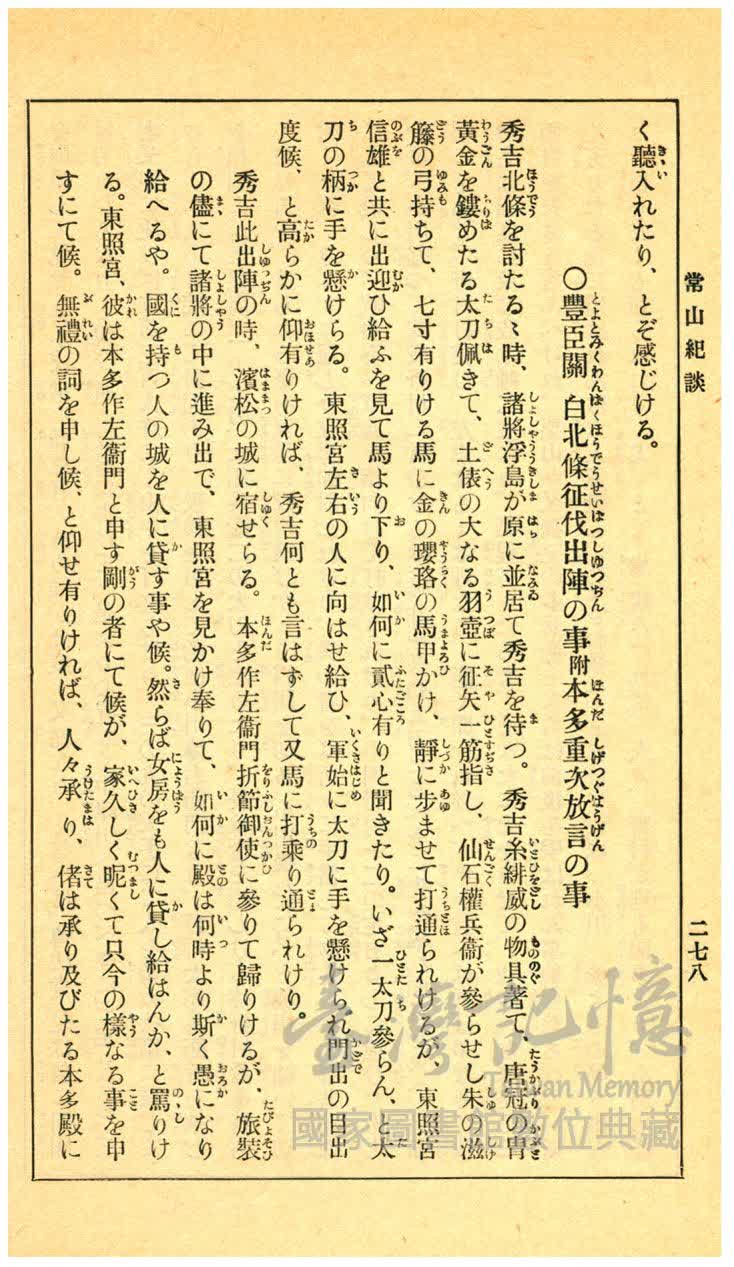 常山紀談
二七八
く聽入れたり、とぞ感じける。
〇豐臣關白北條征伐出陣の事附本多重次放言の事
秀吉北條を討たるゝ時、諸將浮島が原に並居て秀吉を待つ。秀吉糸緋威の物具著て、唐冠の冑
黃金を鏤めたる太刀佩きて、土俵の大なる羽壺に征矢一筋指し、仙石權兵衞が參らせし朱の滋
籐の弓持ちて、七寸有りける馬に金の瓔珞の馬甲かけ、靜に步ませて打通られけるが、東照宮
信雄と共に出迎ひ給ふを見て馬より下り、如何に貳心有りと聞きたり。いざ一太刀參らん、と太
刀の柄に手を懸けらる。東照宮左右の人に向はせ給ひ、軍始に太刀に手を懸けられ門出の目出
度候、と高らかに仰有りければ、秀吉何とも言はずして又馬に打乘り通られけり。
秀吉此出陣の時、濱松の城に宿せらる。本多作左衞門折節御使に參りて歸りけるが、旅裝
の儘にて諸將の中に進み出で、東照宮を見かけ奉りて、如何に殿は何時より斯く愚になり
給へるや。國を持つ人の城を人に貸す事や候。然らば女房をも人に貸し給はんか、と罵りけ
る。東照宮、彼は本多作左衞門と申す剛の者にて候が、家久しく昵くて只今の樣なる事を申
すにて候。無禮の詞を申し候、と仰せ有りければ、人々承り、偖は承り及びたる本多殿に
臺灣記憶
Taiwan Memory
國家圖書館數位典藏